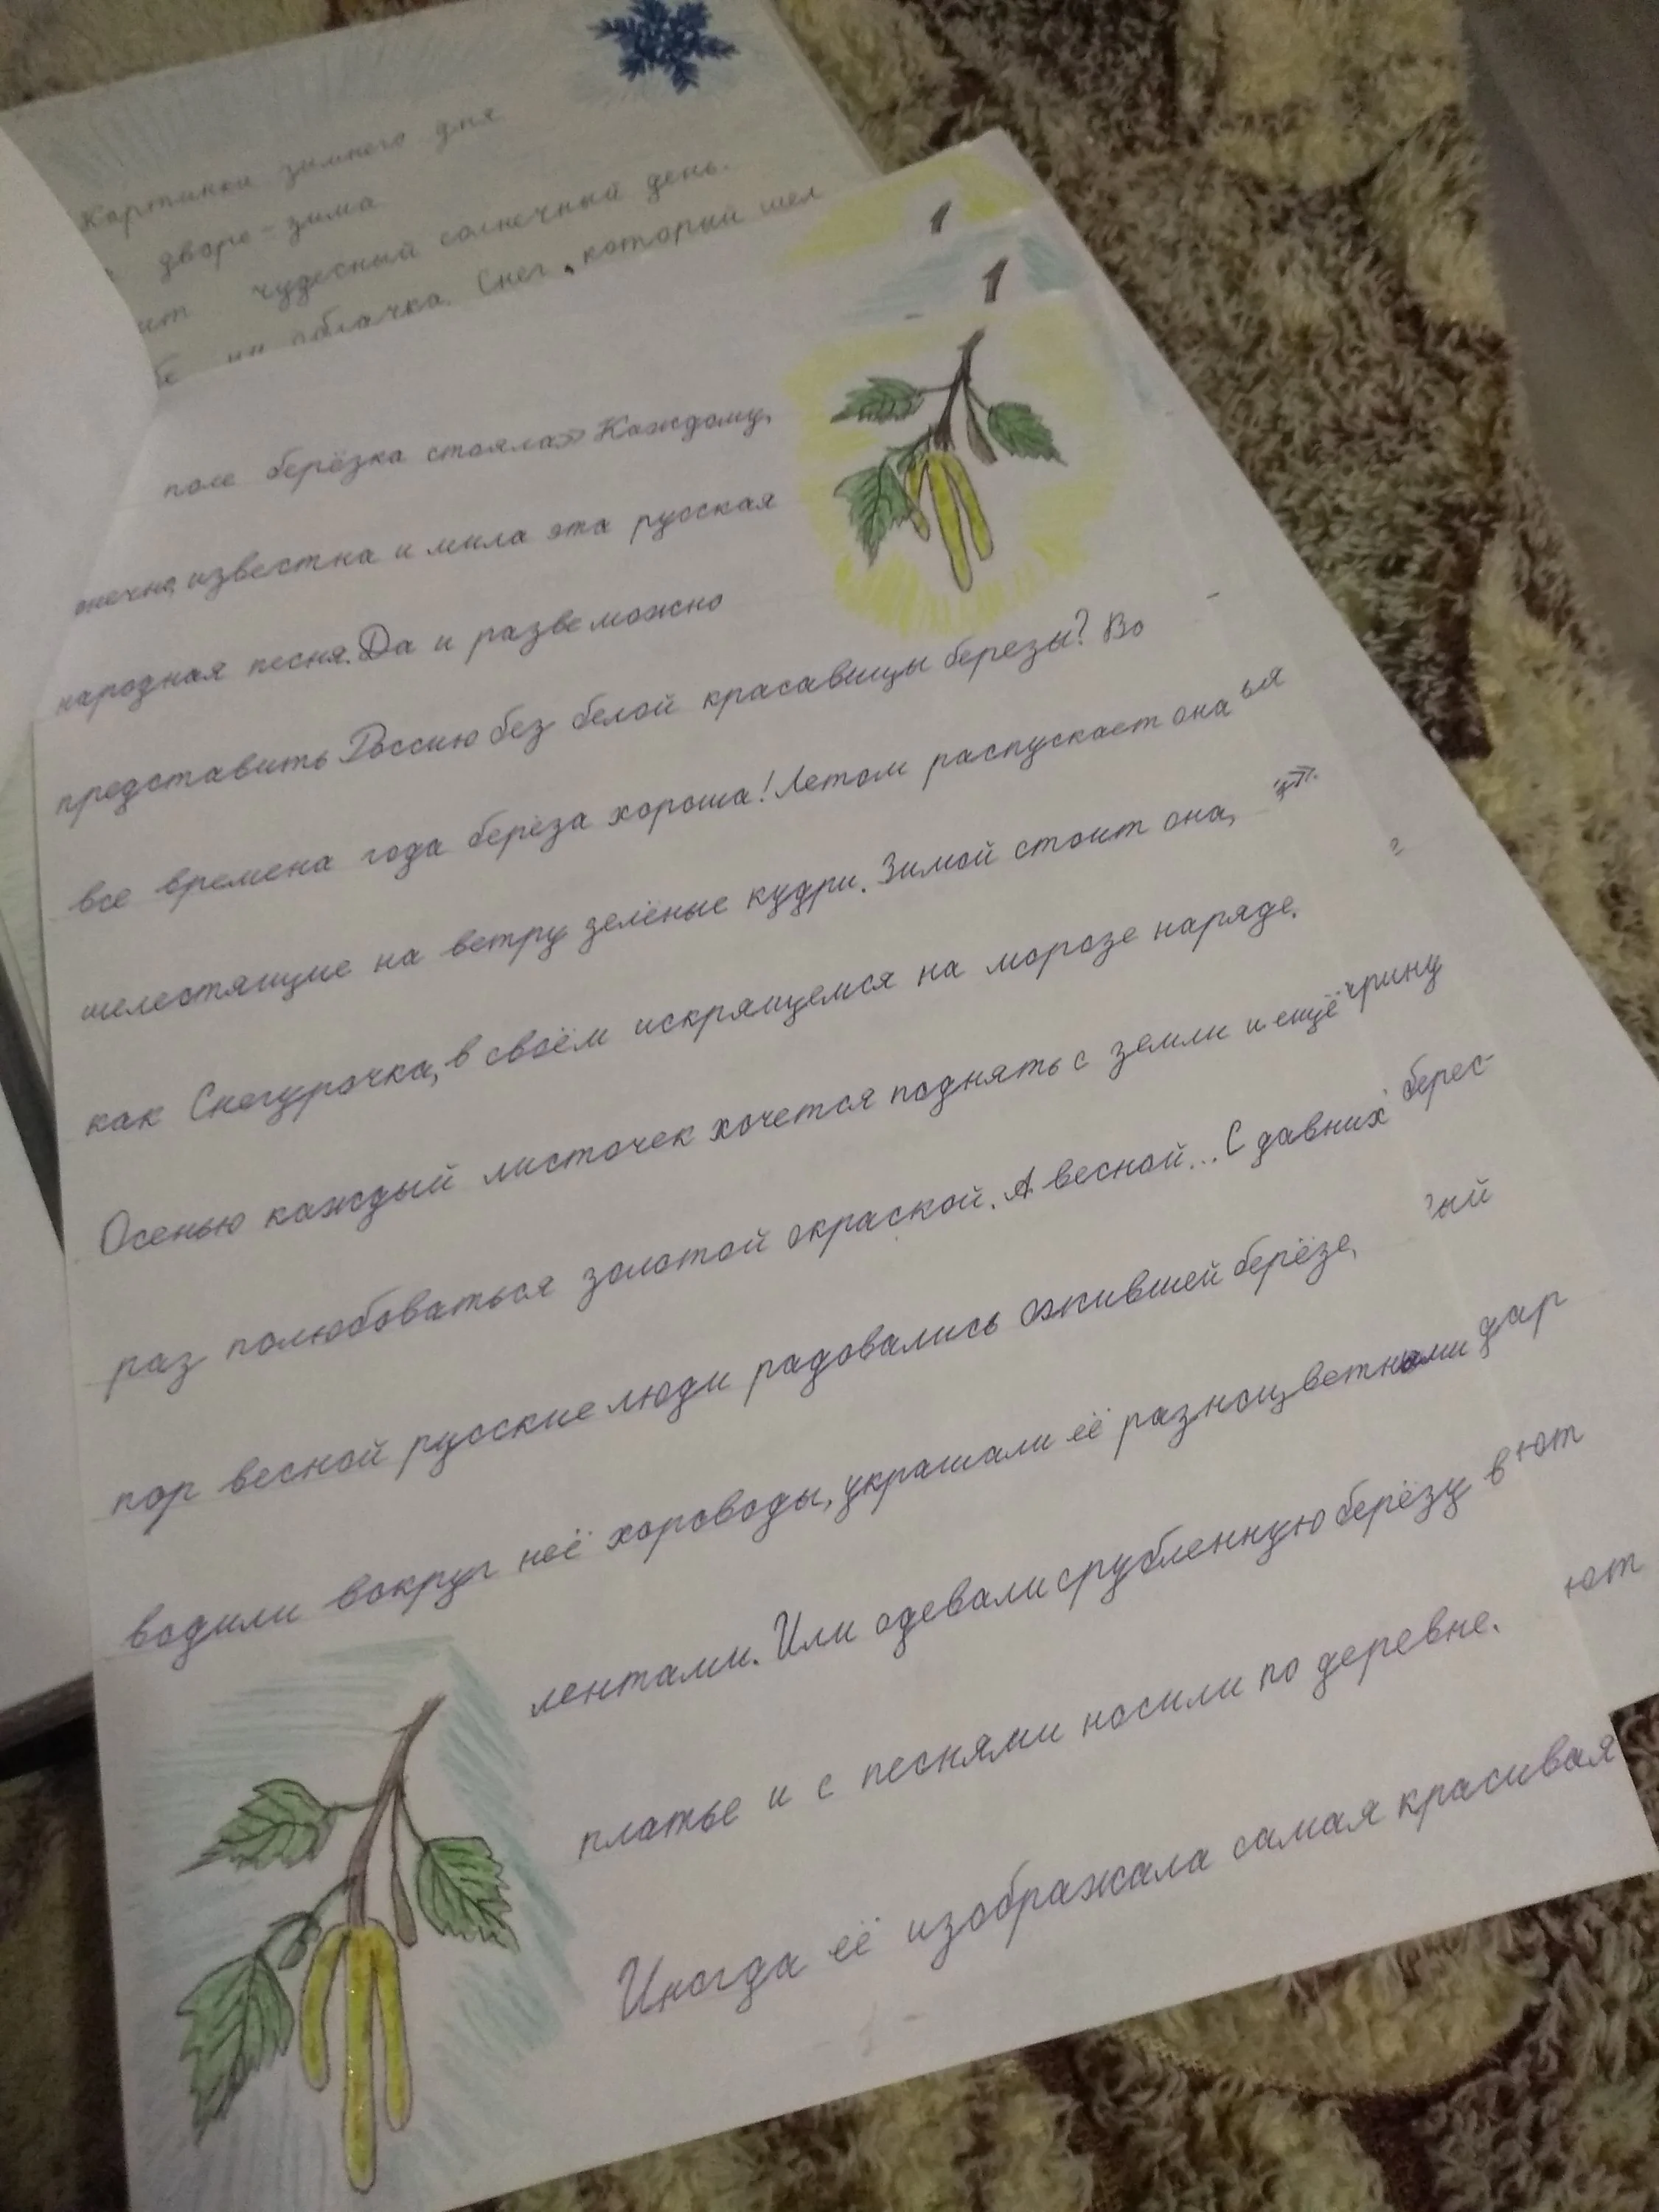 Картинки зимнего дня
дворе - зима
чудесный солнечный день.
ни облачка. Снег, который шел
1
1
поле берёзка стояла» Каждому,
конечно, известна и мила эта русская
народная песня. Да и разве можно
представить Россию без белой красавицы березы? Во
все времена года берёза хороша! Летом распускает она
ья
шелестящие на ветру зелёные кудри. Зимой стоит она,
как Снегурочка, в своём искрящемся на морозе наряде.
Осенью каждый листочек хочется поднять с земли и ещё
чрину
раз полюбоваться золотой окраской. А весной... С давних
берес-
пор весной русские люди радовались ожившей берёзе,
ый
водили вокруг неё хороводы, украшали её разноцветными
дар
лентами. Или одевали срубленную берёзу в
ют
платье и с песнями носили по деревне.
ют
Иногда её изображала самая красивая
- 1 -